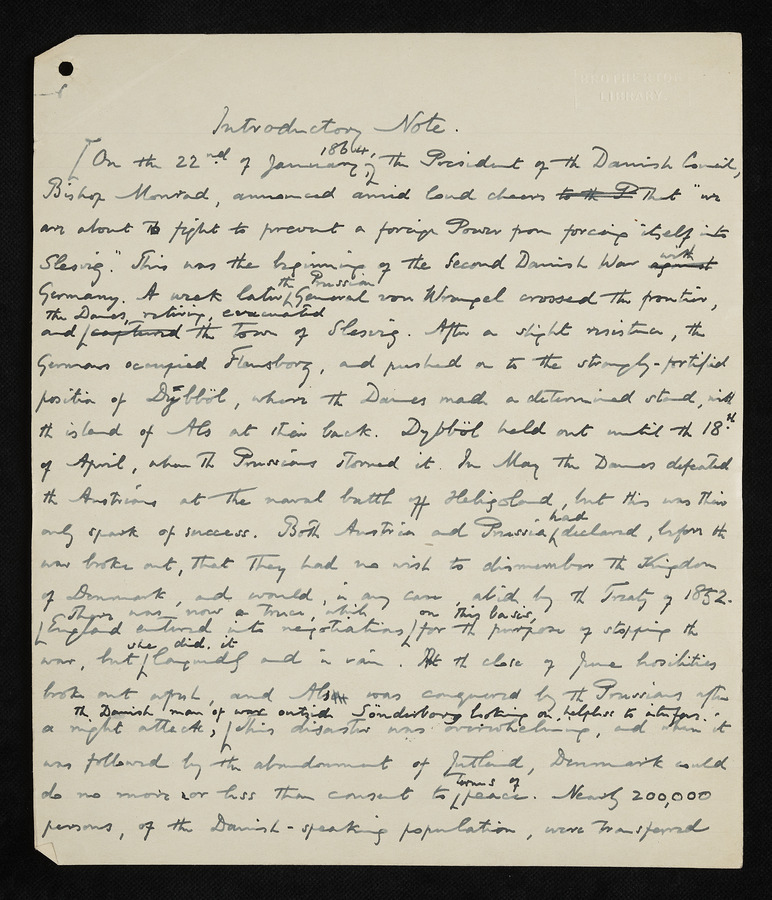 BROTHERTON
LIBRARY
Introductory Note.
[On the 22nd of January 1864, the President of the Danish Council,
Bishop Monrad, announced amid loud cheers to the P that "we
are about to fight to prevent a foreign Power from forcing itself into
Slesvig." This was the beginning of the Second Danish War against with
Germany. A week later the Prussian General von Wrangel crossed the frontier,
and captured the Danes, retiring, evacuated the town of Slesvig. After a slight resistance, the
Germans occupied Flensborg, and pushed on to the strongly-fortified
position of Dybböl, where the Danes made a determined stand, with
the island of Als at their back. Dybböl held out until the 18th
of April, when the Prussians stormed it. In May the Danes defeated
the Austrians at the naval battle off Heligoland, but this was their
only spark of success. Both Austria and Prussia had declared, before the
war broke out, that they had no wish to dismember the Kingdom
of Denmark, and would, in any case, abide by the Treaty of 1852.
There was now a truce, while on this basis,
England entered into negotiations for the purpose of stopping the
war, but she did it languidly and in vain. At the close of June hostilities
broke out afresh, and Als was conquered by the Prussians after
a night attack, the Danish man of war outside Sönderborg looking on, helpless to interfere.
This disaster was overwhelming, and when it
was followed by the abandonment of Jutland, Denmark could
do no more nor less than consent to terms of peace. Nearly 200,000
persons, of the Danish-speaking population, were transferred